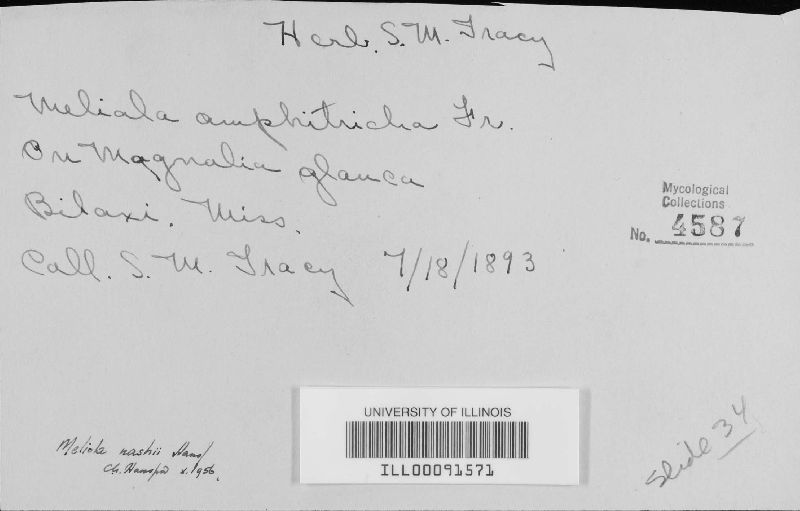 Herb. S. M. Tracy
Meliola amphitricha Fr.
On Magnolia glauca
Biloxi, Miss.
Coll. S. M. Tracy 7/18/1893
Mycological
Collections
No. 4587
UNIVERSITY OF ILLINOIS
ILL00091571
Meliola nashii
x.1956
Slide 34